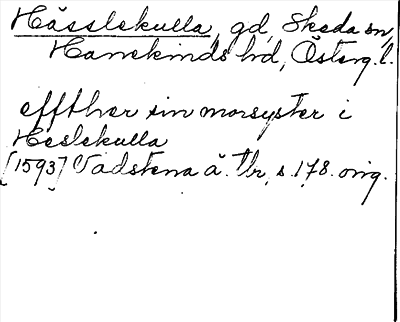 Hässlekulla, gd, Skeda sn,
Hanekinds hd, Österg. l.
effther sin morsyster i
Heslekulla
[1593] Vadstena ä. Tb, s. 178. orig.